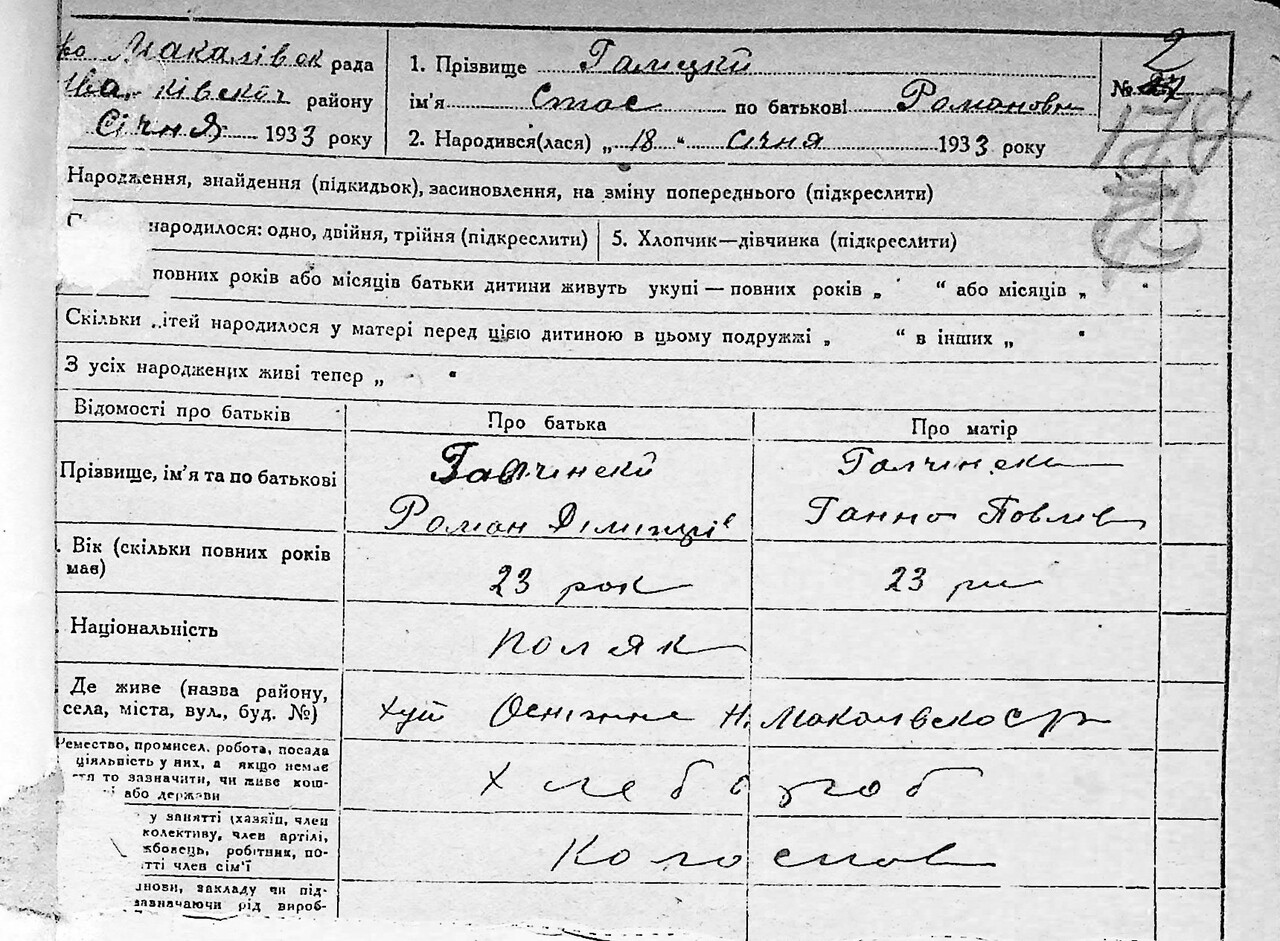 Макалівск рада
району
Січня 1933 року
1. Прізвище Галицкй
ім'я Стас по батькові Романови
2. Народився(лася) „ 18 " січня 1933 року
№ 2
Народження, знайдення (підкидьок), засиновлення, на зміну попереднього (підкреслити)
народилося: одно, двійня, трійня (підкреслити)
5. Хлопчик—дівчинка (підкреслити)
повних років або місяців батьки дитини живуть укупі — повних років „ " або місяців „ "
Скільки дітей народилося у матері перед цією дитиною в цьому подружжі „ " в інших „ "
З усіх народжених живі тепер „ "
Відомості про батьків
Про батька
Про матір
Прізвище, ім'я та по батькові
Галчинскй
Галчинска
Роман
Ганна Павлів
Вік (скільки повних років має)
23 рок
23 ри
Національність
поляк
Де живе (назва району,
села, міста, вул., буд. №)
хут Осніжне Н. Макалівскос/р
Ремество, промисел, робота, посада
ціяльність у них, а якщо немає
то зазначити, чи живе кош-
або держави
хлебороб
у занятті (хазяїн, член
колективу, член артілі,
жбовець, робітник, по-
тті член сім'ї
Колоспов
нови, закладу чи під-
зазначаючи рід вироб-